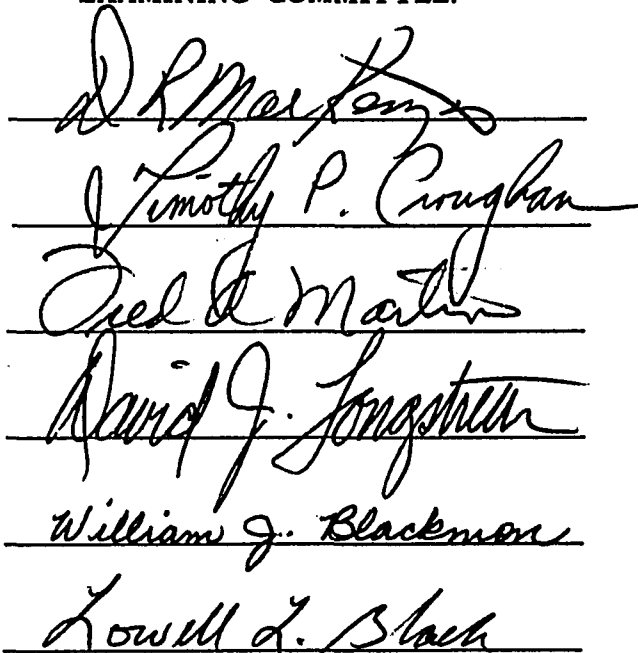 EXAMINING COMMITTEE:
D R MacKenzie
Timothy P. Croughan
Fred A Martin
David J. Longstreth
William J. Blackmon
Lowell L. Black